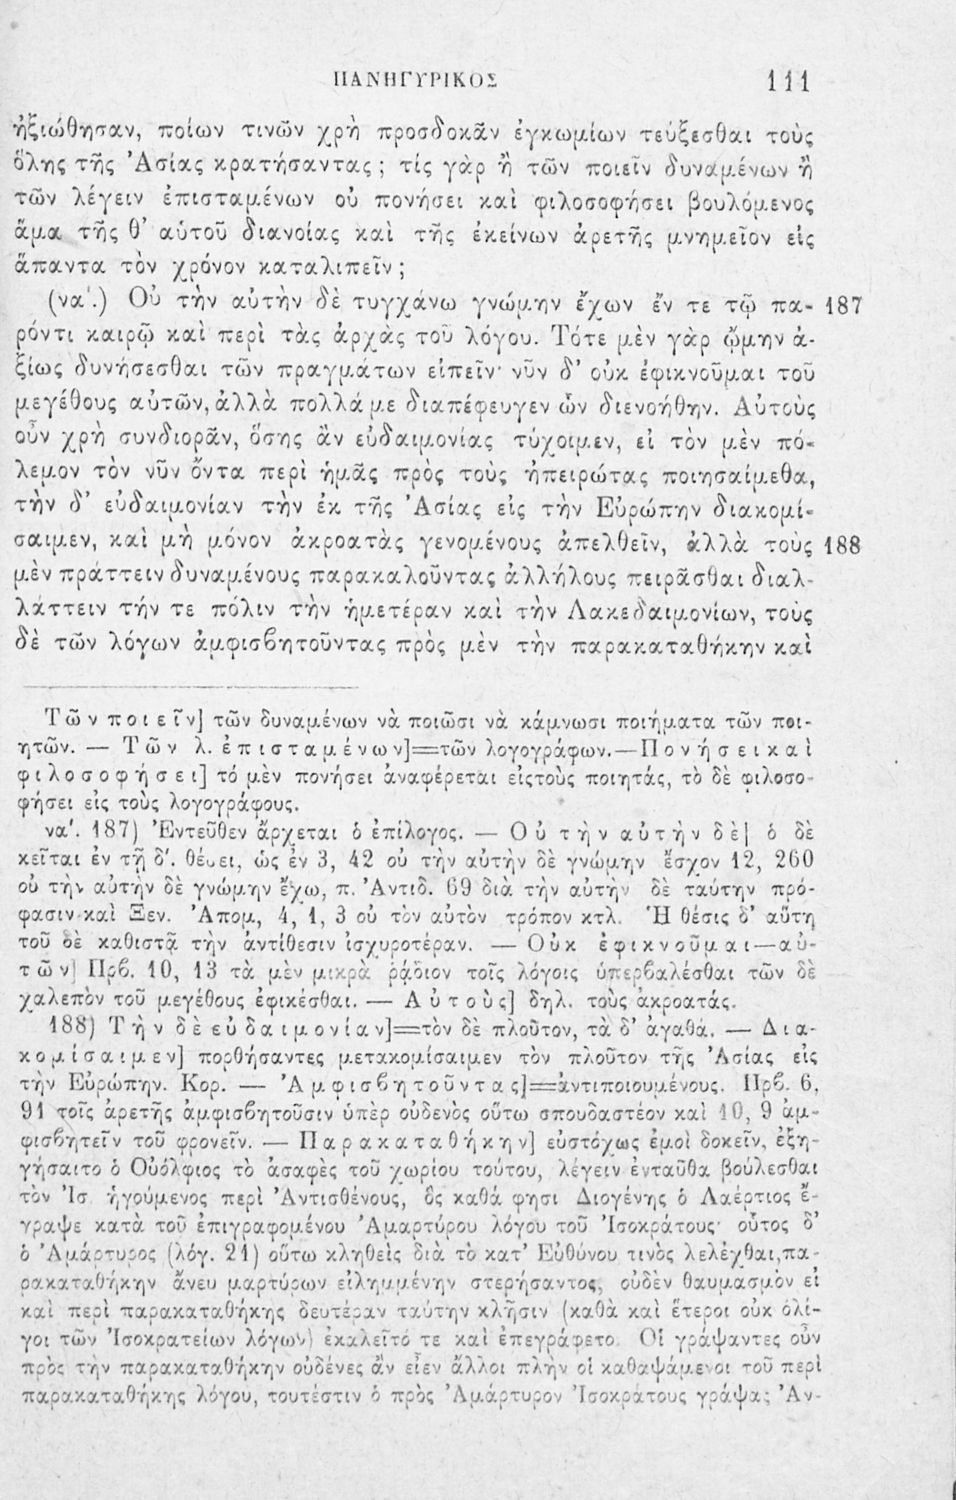 ΠΑΝΗΓΥΡΙΚΟΣ 111
ἠξιώθησαν, ποίων τινῶν χρὴ προσδοκᾶν ἐγκωμίων τεύξεσθαι τοὺς
ὅλης τῆς Ἀσίας κρατήσαντας; τίς γὰρ ἢ τῶν ποιεῖν δυναμένων ἢ
τῶν λέγειν ἐπισταμένων οὐ πονήσει καὶ φιλοσοφήσει βουλόμενος
ἅμα τῆς θ’ αὑτοῦ διανοίας καὶ τῆς ἐκείνων ἀρετῆς μνημεῖον εἰς
ἅπαντα τὸν χρόνον καταλιπεῖν;
(να΄.) Οὐ τὴν αὐτὴν δὲ τυγχάνω γνώμην ἔχων ἔν τε τῷ πα- 187
ρόντι καιρῷ καὶ περὶ τὰς ἀρχὰς τοῦ λόγου. Τότε μὲν γὰρ ᾤμην ἀ-
ξίως δυνήσεσθαι τῶν πραγμάτων εἰπεῖν· νῦν δ’ οὐκ ἐφικνοῦμαι τοῦ
μεγέθους αὐτῶν, ἀλλὰ πολλά με διαπέφευγεν ὧν διενοήθην. Αὐτοὺς
οὖν χρὴ συνδιορᾶν, ὅσης ἂν εὐδαιμονίας τύχοιμεν, εἰ τὸν μὲν πό-
λεμον τὸν νῦν ὄντα περὶ ἡμᾶς πρὸς τοὺς ἠπειρώτας ποιησαίμεθα,
τὴν δ’ εὐδαιμονίαν τὴν ἐκ τῆς Ἀσίας εἰς τὴν Εὐρώπην διακομί-
σαιμεν, καὶ μὴ μόνον ἀκροατὰς γενομένους ἀπελθεῖν, ἀλλὰ τοὺς 188
μὲν πράττειν δυναμένους παρακαλοῦντας ἀλλήλους πειρᾶσθαι διαλ-
λάττειν τήν τε πόλιν τὴν ἡμετέραν καὶ τὴν Λακεδαιμονίων, τοὺς
δὲ τῶν λόγων ἀμφισβητοῦντας πρὸς μὲν τὴν παρακαταθήκην καὶ
Τῶν ποιεῖν] τῶν δυναμένων νὰ ποιῶσι νὰ κάμνωσι ποιήματα τῶν ποι-
ητῶν. — Τῶν λ. ἐπισταμένων]=τῶν λογογράφων.—Πονήσει καὶ
φιλοσοφήσει] τό μὲν πονήσει ἀναφέρεται εἰςτοὺς ποιητάς, τὸ δὲ φιλοσο-
φήσει εἰς τοὺς λογογράφους.
να΄. 187) Ἐντεῦθεν ἄρχεται ὁ ἐπίλογος. — Οὐ τὴν αὐτὴν δὲ] ὁ δὲ
κεῖται ἐν τῇ δ΄. θέσει, ὡς ἐν 3, 42 οὐ τὴν αὐτὴν δὲ γνώμην ἔσχον 12, 260
οὐ τὴν αὐτὴν δὲ γνώμην ἔχω, π. Ἀντιδ. 69 διὰ τὴν αὐτὴν δὲ ταύτην πρό-
φασιν καὶ Ξεν. Ἀπομ, 4, 1, 3 οὐ τὸν αὐτὸν τρόπον κτλ. Ἡ θέσις δ’ αὕτη
τοῦ δὲ καθιστᾷ τὴν ἀντίθεσιν ἰσχυροτέραν. — Οὐκ ἐφικνοῦμαι—αὐ-
τῶν] Πρβ. 10, 13 τὰ μὲν μικρὰ ῥᾴδιον τοῖς λόγοις ὑπερβαλέσθαι τῶν δὲ
χαλεπὸν τοῦ μεγέθους ἐφικέσθαι. — Αὐτοὺς] δηλ. τοὺς ἀκροατάς.
188) Τὴν δὲ εὐδαιμονίαν]=τὸν δὲ πλοῦτον, τὰ δ’ ἀγαθά. — Δια-
κομίσαιμεν] πορθήσαντες μετακομίσαιμεν τὸν πλοῦτον τῆς Ἀσίας εἰς
τὴν Εὐρώπην. Κορ. — Ἀμφισβητοῦντας]=ἀντιποιουμένους. Πρβ. 6,
91 τοῖς ἀρετῆς ἀμφισβητοῦσιν ὑπὲρ οὐδενὸς οὕτω σπουδαστέον καὶ 10, 9 ἀμ-
φισβητεῖν τοῦ φρονεῖν. — Παρακαταθήκην] εὐστόχως ἐμοὶ δοκεῖν, ἐξη-
γήσαιτο ὁ Οὐόλφιος τὸ ἀσαφὲς τοῦ χωρίου τούτου, λέγειν ἐνταῦθα βούλεσθαι
τὸν Ἰσ ἡγούμενος περὶ Ἀντισθένους, ὃς καθά φησι Διογένης ὁ Λαέρτιος ἔ-
γραψε κατὰ τοῦ ἐπιγραφομένου Ἀμαρτύρου λόγου τοῦ Ἰσοκράτους· οὗτος δ’
ὁ Ἀμάρτυρος (λόγ. 21) οὕτω κληθεὶς διὰ τὸ κατ’ Εὐθύνου τινὸς λελέχθαι, πα-
ρακαταθήκην ἄνευ μαρτύρων εἰλημμένην στερήσαντος, οὐδὲν θαυμασμὸν εἰ
καὶ περὶ παρακαταθήκης δευτέραν ταύτην κλῆσιν (καθὰ καὶ ἕτεροι οὐκ ὀλί-
γοι τῶν Ἰσοκρατείων λόγων) ἐκαλεῖτό τε καὶ ἐπεγράφετο. Οἱ γράψαντες οὖν
πρὸς τὴν παρακαταθήκην οὐδένες ἂν εἶεν ἄλλοι πλὴν οἱ καθαψάμενοι τοῦ περὶ
παρακαταθήκης λόγου, τουτέστιν ὁ πρὸς Ἀμάρτυρον Ἰσοκράτους γράψας Ἀν-